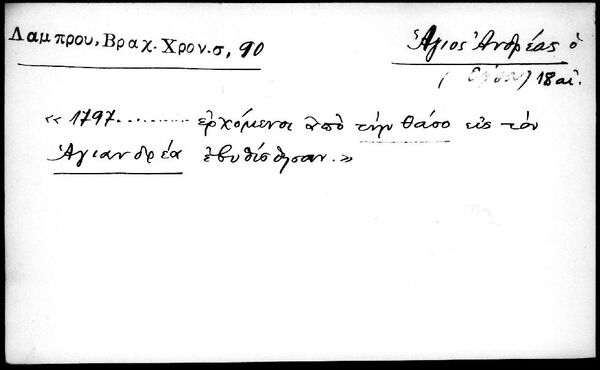 Λαμπρου, Βραχ. Χρον. σ, 90
Ἅγιος Ἀνδρέας ὁ
( ) 18 αἰ.
« 1797.......... ἐρχόμενοι ἀπὸ τὴν θάσο εἰς τὸν
Ἁγιανδρέα ἐβυθίσθησαν. »